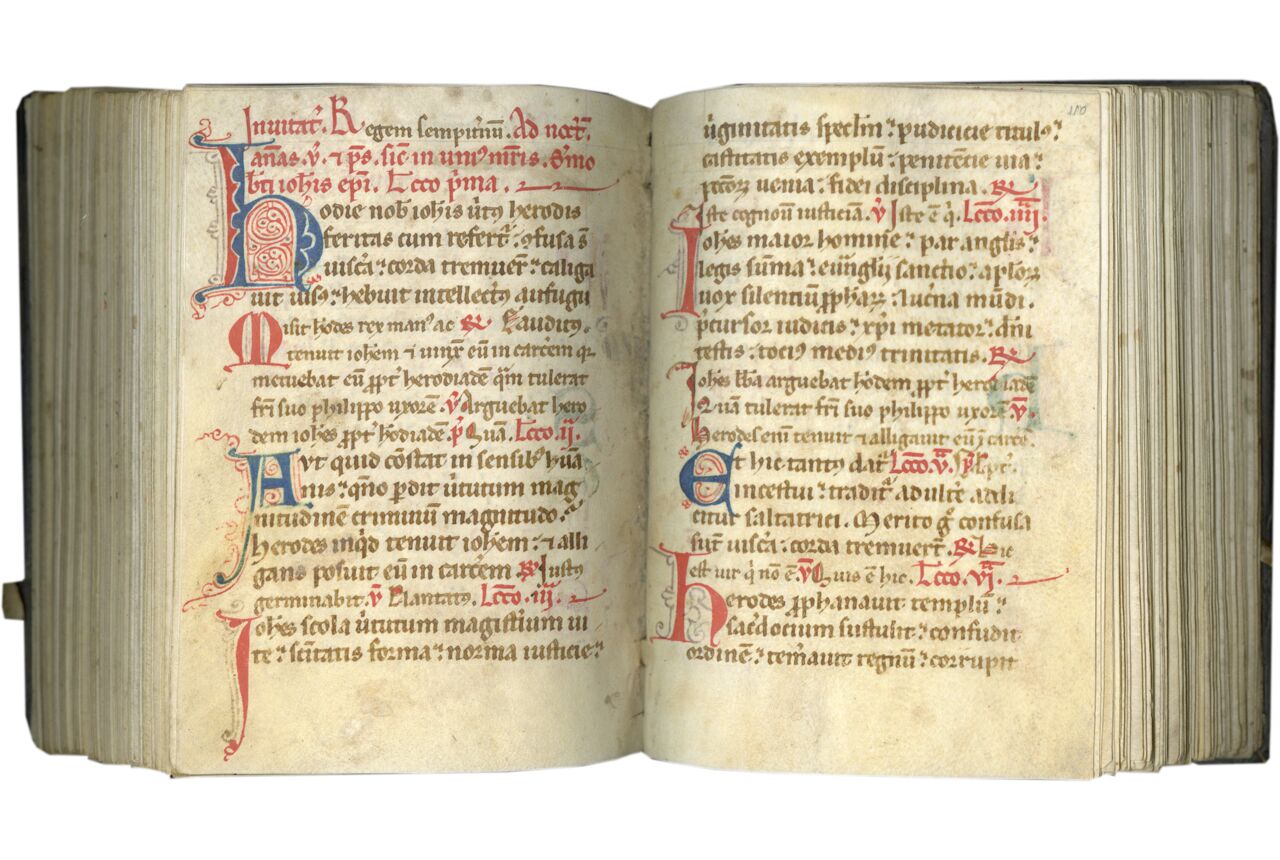 Inuitat̉. R egem sempit̉nū. Ad noct̉.
lañas. v̉. ⁊ p̄s. sic̄ in uniꝰ mr̄is. S̉mo
bt̄i ioh̄is ep̄i. Lc̄c̄o p̉ma.
hodie nob̄ ioh̄is ũtꝰ herodis
feritas cum refert̉. ꝯfusa s̄
uisc̉a ⁊ corda tremuer̄ ⁊ caliga
uit uisꝰ ⁊ hebuit intellectꝰ aufugit
Misit h̉odes rex manꝰ ac R̷ E auditꝰ.
tenuit ioh̄em ⁊ uinx̄ eū in carc̉em qr̄
metuebat eū ꝓpt̉ herodiadē q̄m tulerat
fr̄i suo philippo uxorē. v̉ Arguebat hero
dem ioh̄es ꝓpt̉ h̉odiadē. p̉ Quā. Lc̄c̄o .ii.
Aut quid cōstat in sensibꝰ hūa
nis ⁊ qñ̄o ꝑdit ũtutum mag
nitudinē criminum magnitudo.
herodes inq̉d tenuit ioh̄em ⁊ alli
gans posuit eū in carc̉em R̷ Iustꝰ
germinabit. v̉ Plantatꝰ. Lc̄c̄o .iii.
Ioh̄es scola ũtutum magist̉ium ui
te ⁊ sc̄itatis forma ⁊ norma iusticie ⁊
100
ũginitatis specl̄m ⁊ pudicicie titulꝰ ⁊
castitatis exemplū ⁊ penitēcie uia ⁊
pc̄c̄oꝝ uenia ⁊ fidei disciplina. R̷
Iste cognouit iusticiā. v̉ Iste ē q̉. Lc̄c̄o .iiii.
Ioh̄es maior homine ⁊ par angl̄is ⁊
legis sūma ⁊ eūnglii sanctio ⁊ ap̄loꝝ
uox silentiū ꝓphaꝝ ⁊ luc̉na mūdi.
p̄cursor iudicis ⁊ xp̄i metator ⁊ dn̄i
testis ⁊ tociꝰ mediꝰ trinitatis. R̷
Ioh̄es bb̄a arguebat h̉odem ꝓpt̉ herodiadē
Quā tulerat fr̄i suo philippo uxorē v̉.
Herodes eni tenuit ⁊ alligauit eū ī carce.
Et hic tantꝰ dat̉ Lc̄c̄o .v̄. Spl̄pt̉.
incestui ⁊ tradit̉ adult̉e addi
citur saltatrici. Merito g̉ confusa
sūt uisc̉a ⁊ corda tremuer̄t. R̷ Hic
est uir q̉ nō ē v̉ Quis ē hic. Lc̄c̄o .vi̅.
herodes ꝓphanauit templū ⁊
sac̉docium sustulit ⁊ confudit
ordinē ⁊ tem̉auit regnū ⁊ corrupit